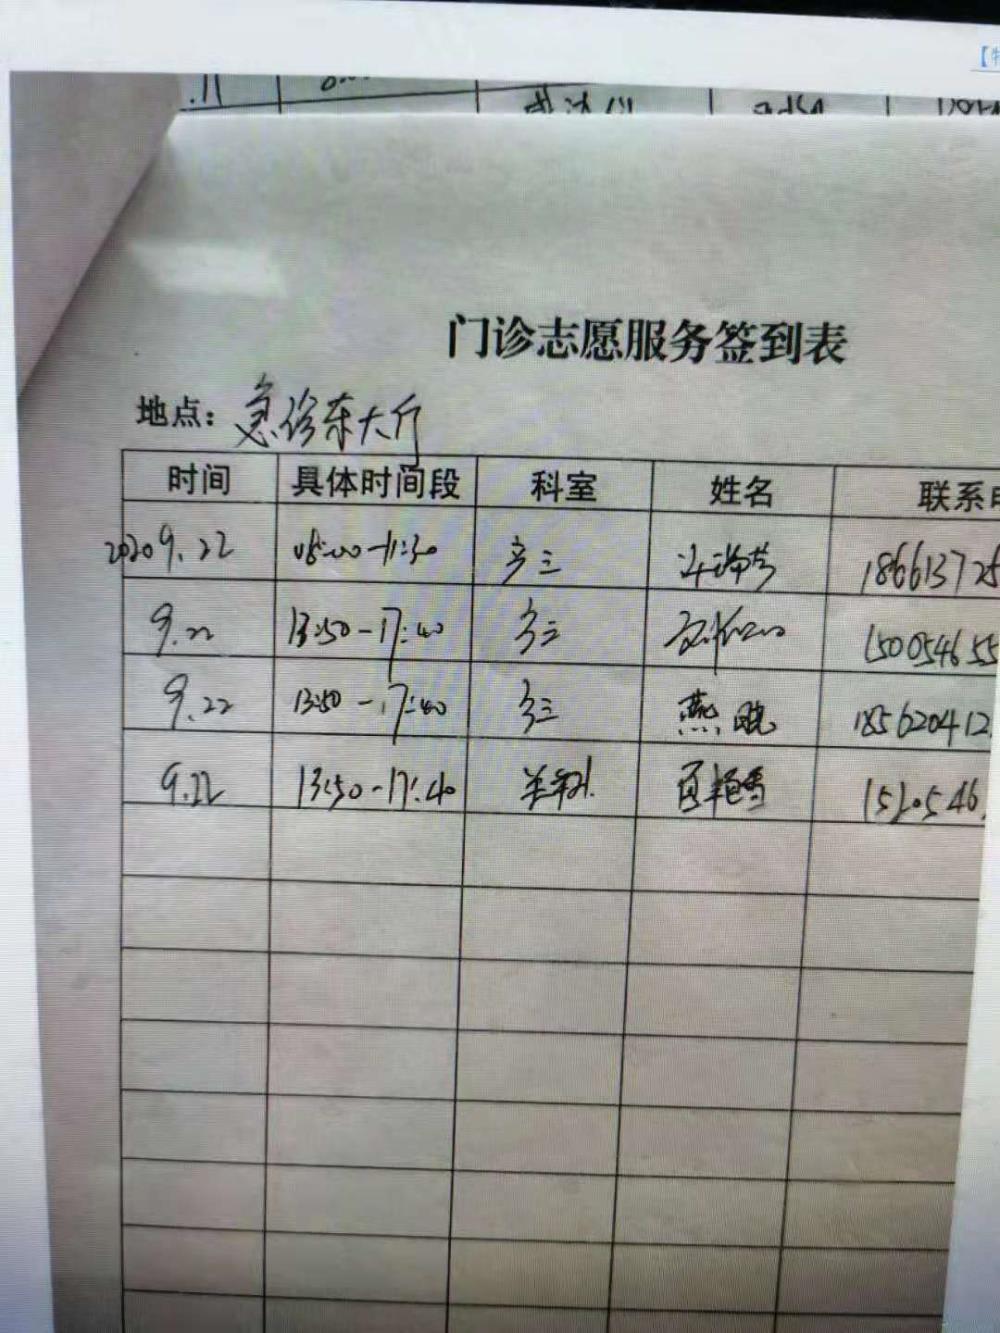 门诊志愿服务签到表
地点：急诊东大厅
时间 具体时间段 科室 姓名 联系
2020 9.22 08:00-11:30 产三 18661372
9.22 13:50-17:40 产三 150054655
9.22 13:50-17:40 产三 燕晓 185620412
9.22 13:50-17:40 1520546